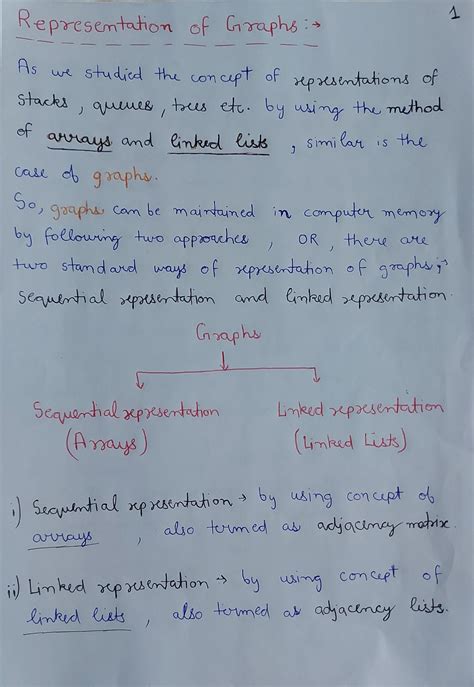 1
Representation of Graphs :→
As we studied the concept of representations of
stacks, queues, trees etc. by using the method
of arrays and linked lists, similar is the
case of graphs.
So, graphs can be maintained in computer memory
by following two approaches, OR, there are
two standard ways of representation of graphs;→
Sequential representation and linked representation.
Graphs
Sequential representation Linked representation
(Arrays) (Linked Lists)
i) Sequential representation → by using concept of
arrays, also termed as adjacency matrix.
ii) Linked representation → by using concept of
linked lists, also termed as adjacency lists.